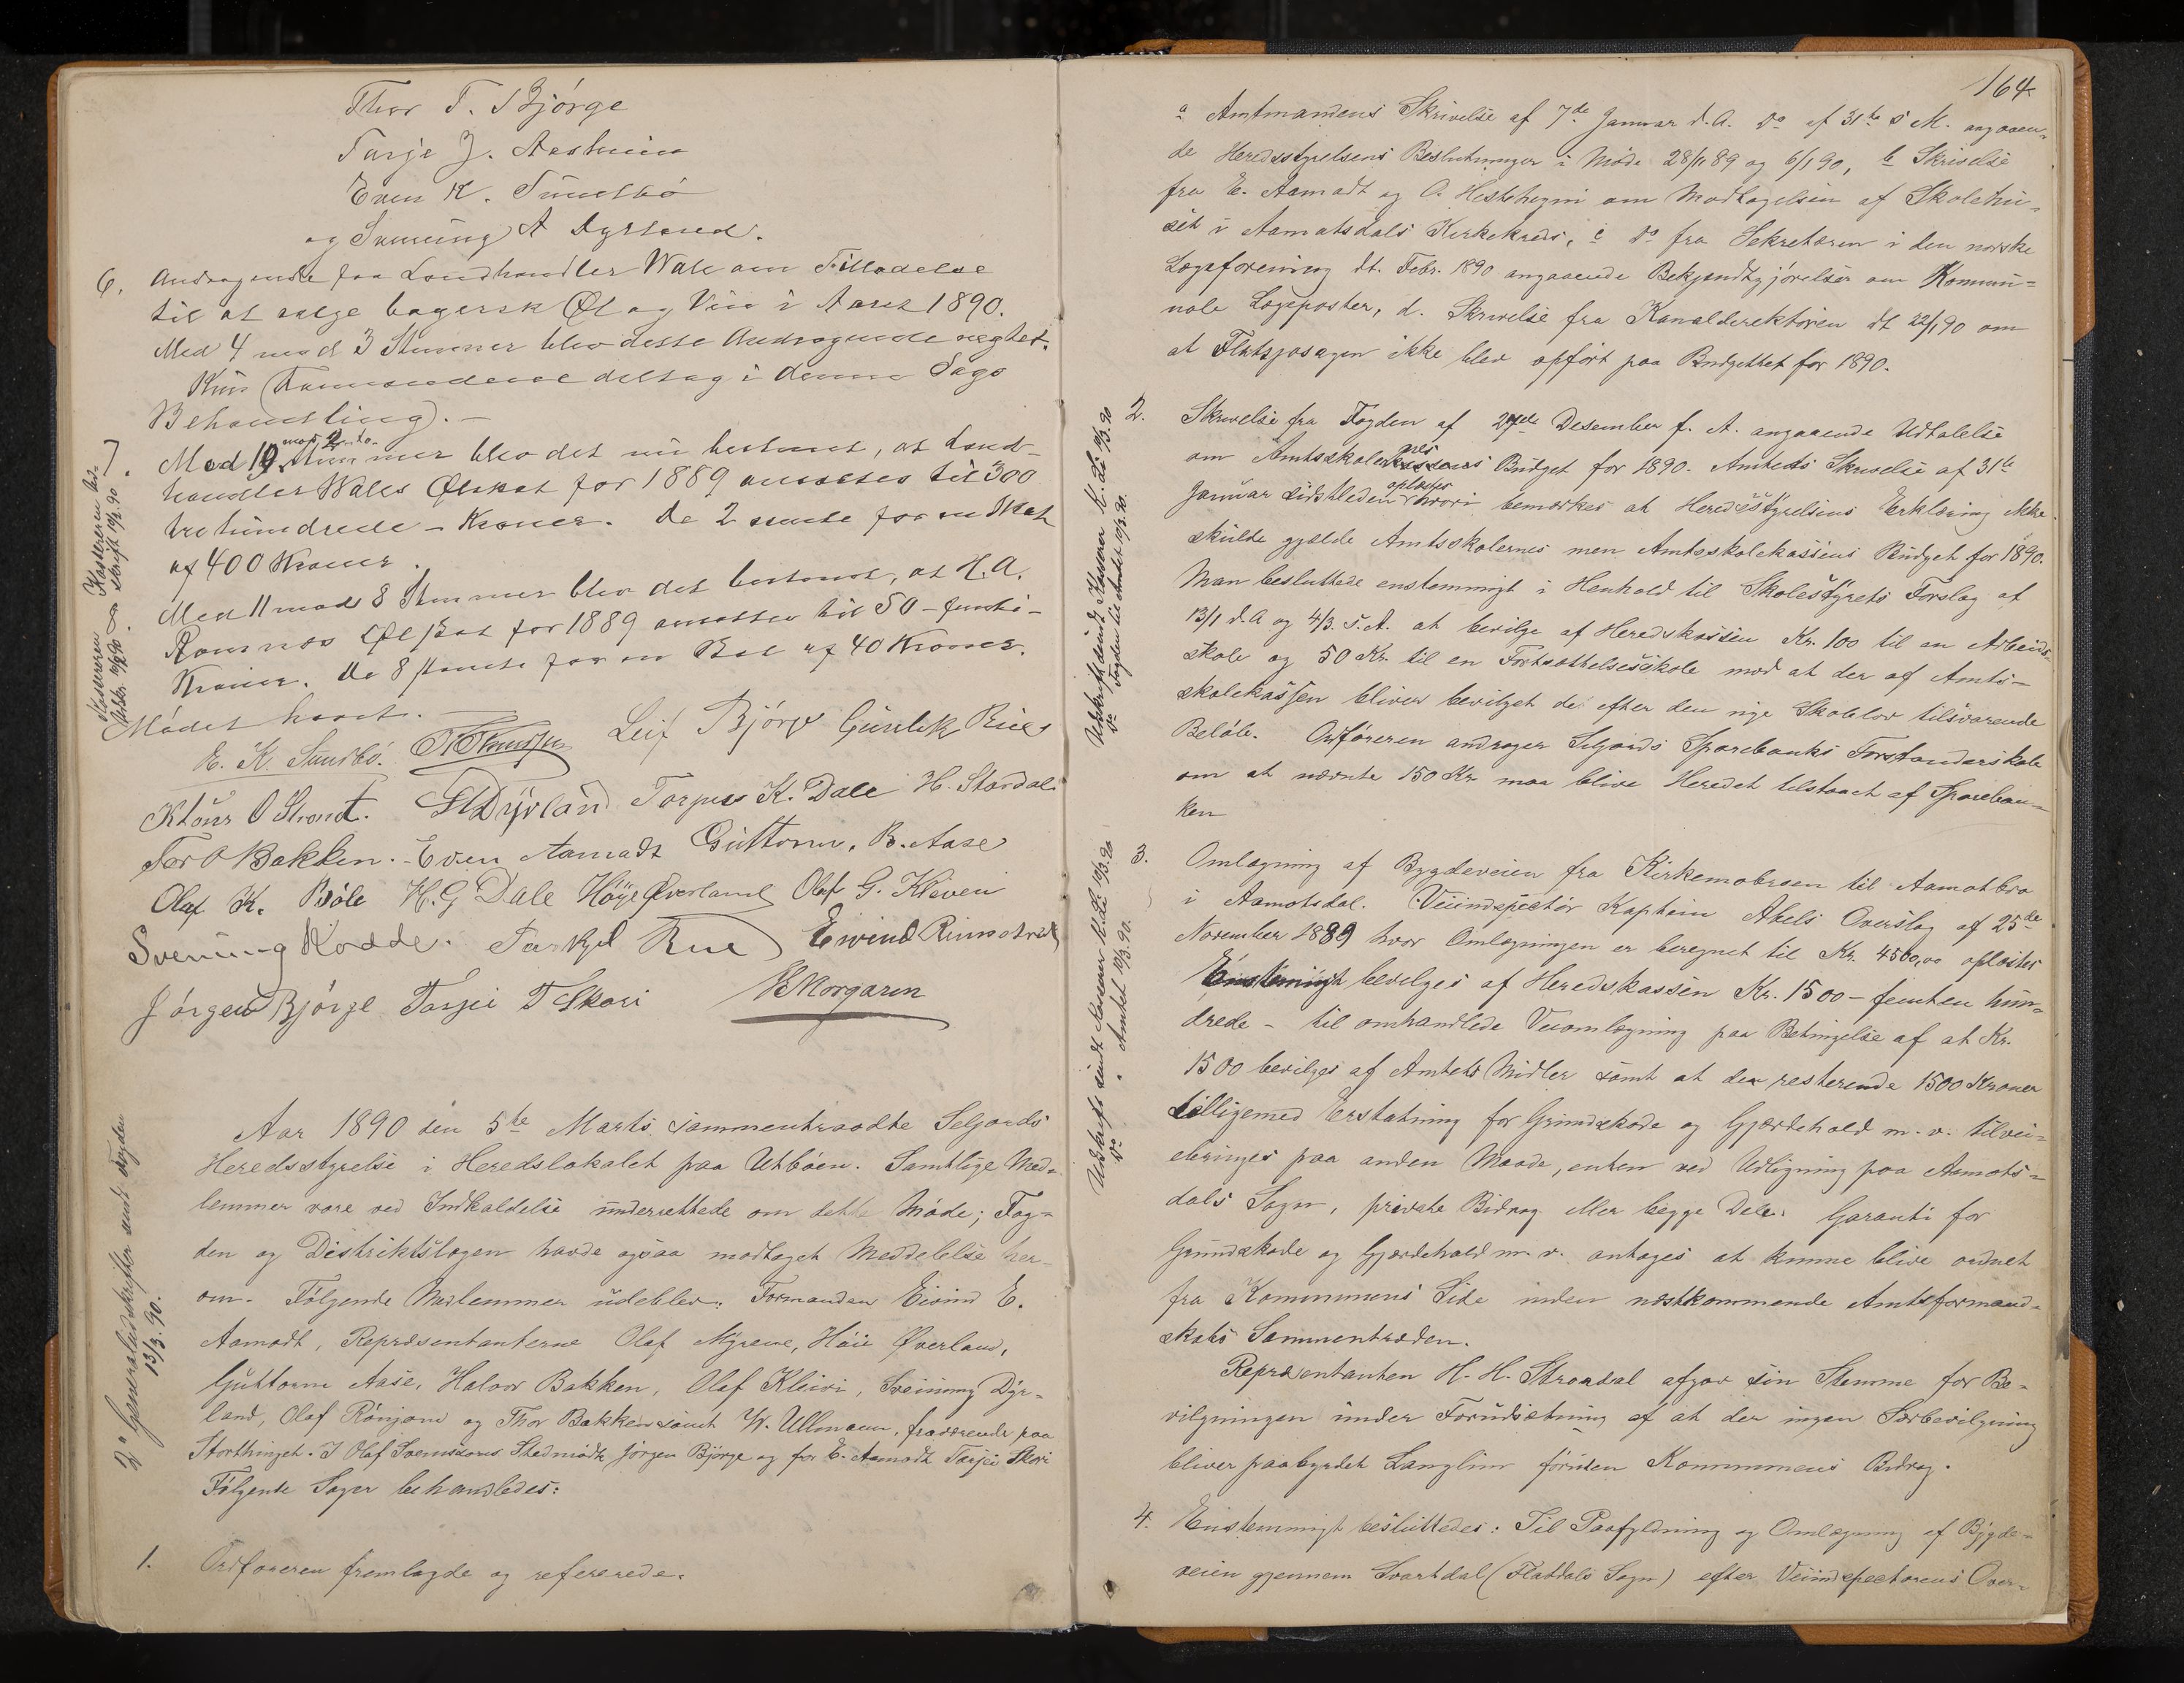 Thor T. Bjórge
Tarje J. Aasheim
Even K. Sundbó
og Sveinung A Dyrland.
6. Andragende fra Landhandler Wale om Tilladelse
til at sælge bayersk Øl og Vin i Aaret 1890.
Med 4 mod 3 Stemmer blev dette Andragende negtet.
Kun Formændene deltog i denne Sags
Behandling). —
7. Med 19 mod 2 Stemmer blev det nu bestemt, at Land-
handler Wales Ølskat for 1889 ansættes til 300
tre hundrede - Kroner. De 2 stemte for en Skat
af 400 Kroner.
Med 11 mod 8 Stemmer blev det bestemt, at H. A.
Ølskat for 1889 ansættes til 50 - femti -
Kroner. De 8 stemte for en Skat af 40 Kroner.
Mødet hævet.
E. K. Sundbó. Leif Bjórge Gunlik Rue
O Strand. Dyrland Torjus K. Dale H. Stordal
Tor O Bakken. Even Aamodt Guttorm. B. Aase
Olaf K. Bóle H. G Dale Höye Øverland Olaf G. Kleven
Svenung Kodde. Tarkjel Rue Eivind
Jórgen Bjórge Tarjei T Skori
2° Generaludskrifter sendt Fogden
13/3. 90.
Aar 1890 den 5te Marts sammentraadte Seljords
Heredsstyrelse i Heredslokalet paa Utbóen. Samtlige Med-
lemmer vare ved Indkaldelse underrettede om dette Móde; Fog-
den og Distriktslægen havde ogsaa modtaget Meddelelse her-
om. Fólgende Medlemmer udeblev: Formanden Eivind E.
Aamodt, Repræsentanterne Olaf Myrene, Höie Øverland,
Guttorm Aase, Halvor Bakken, Olaf Kleivi, Sveinung Dyr-
land, Olaf Rónjom og Thor Bakken samt V. Ullmann, fraværende paa
Storthinget. I Olaf Svenssons Sted módte Jórgen Bjórge og for E. Aamodt Tarjei Skori
Fólgende Sager behandledes:
1. Ordfóreren fremlagde og refererede.
164
a Amtmandens Skrivelse af 7de Januar d. A. do af 31te s M. angaaen-
de Heredsstyrelsens Beslutninger i Móde 28/11 89 og 6/1 90, b Skrivelse
fra E. Aamodt og O. Hestehegni om Modtagelsen af Skolehu-
set i Aamotsdals Kirkekreds, c do fra Sekretæren i den norske
Lægeforening dt. Febr. 1890 angaaende Bekjendtgjórelser om Kommu-
nale Lægeposter, d. Skrivelse fra Kanaldirektóren dt 22/1 90 om
at Flatsjósagen ikke blev opfórt paa Budgettet for 1890.
Udskrift sendt Kasserer K. Li 10/3. 90
Do Fogden til Amtet 10/3. 90.
2. Skrivelse fra Fogden af 27de Desember f. A. angaaende Udtalelse
om Amtsskolernes Budget for 1890. Amtets Skrivelse af 31te
Januar sidstleden oplæstes hvori bemærkes at Heredsstyrelsens Erklæring ikke
skulde gjælde Amtsskolernes men Amtsskolekassens Budget for 1890.
Man besluttede enstemmigt i Henhold til Skolestyrets Forslag af
13/1 d. A og 4/3. s. A. at bevilge af Heredskassen Kr. 100 til en Arbeids-
skole og 50 Kr. til en Fortsættelsesskole mod at der af Amts-
skolekassen bliver bevilget de efter den nye Skolelov tilsvarende
Belób. Ordfóreren andrager Seljords Sparebanks Forstanderskab
om at nævnte 150 Kr maa blive Heredet tilstaaet af Spareban-
ken
Udskrift sendt Kasserer K. Li 10/3. 90
Do " Amtet 10/3. 90.
3. Omlægning af Bygdeveien fra Kirkemobroen til Aamotbro
i Aamotsdal. Veiinspektór Kaptein Abels Overslag af 25de
November 1889 hvor Omlægningen er beregnet til Kr. 4500,00 oplæstes
Enstemmigt bevilges af Heredskassen Kr. 1500 - femten hun-
drede - til omhandlede Veiomlægning paa Betingelse af at Kr.
1500 bevilges af Amtets Midler samt at den resterende 1500 Kroner
tilligemed Erstatning for Grundskade og Gjærdehold m. v. tilvei-
ebringes paa anden Maade, enten ved Udligning paa Aamots-
dals Sogn, private Bidrag eller begge Dele. Garanti for
Grundskade og Gjærdehold m. v. antages at kunne blive ordnet
fra Kommunens Side inden næstkommende Amtsformand-
skabs Sammentræden.
Repræsentanten H. H. Strondal afgav sin Stemme for Be-
vilgningen under Forudsætning af at der ingen Særbevilgning
bliver paabyrdet Langlim foruden Kommunens Bidrag.
4. Enstemmigt besluttedes: Til Paafyldning og Omlægning af Bygde-
veien gjennem Svartdal (Flatdals Sogn) efter Veiinspectorens Over-